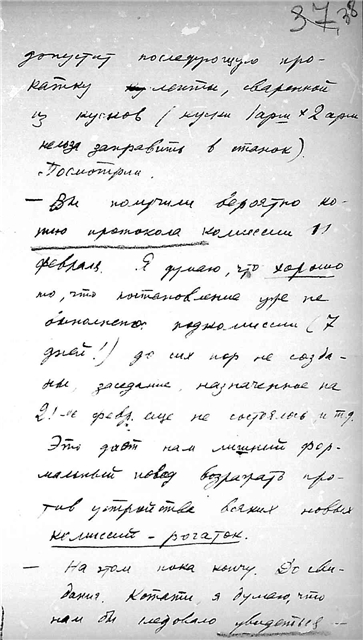 37, 38
допустит последующую про-
катку ленты, сваренной
из кусков (куски 1 арш × 2 арш
нельзя заправить в станок).
Посмотрим.
— Вы получили вероятно ко-
пию протокола комиссии 11
февраля. Я думаю, что хорошо
то, что постановление уже не
выполнено: подкомиссии (7
дней!) до сих пор не созда-
ны, заседание, назначенное на
21-ое февр. еще не состоялось и т.д.
Это даст нам лишний фор-
мальный повод возражать про-
тив устройства всяких новых
комиссий - рогаток.
— На этом пока кончу. До сви-
дания. Кстати, я думаю, что
нам бы следовало увидеться —